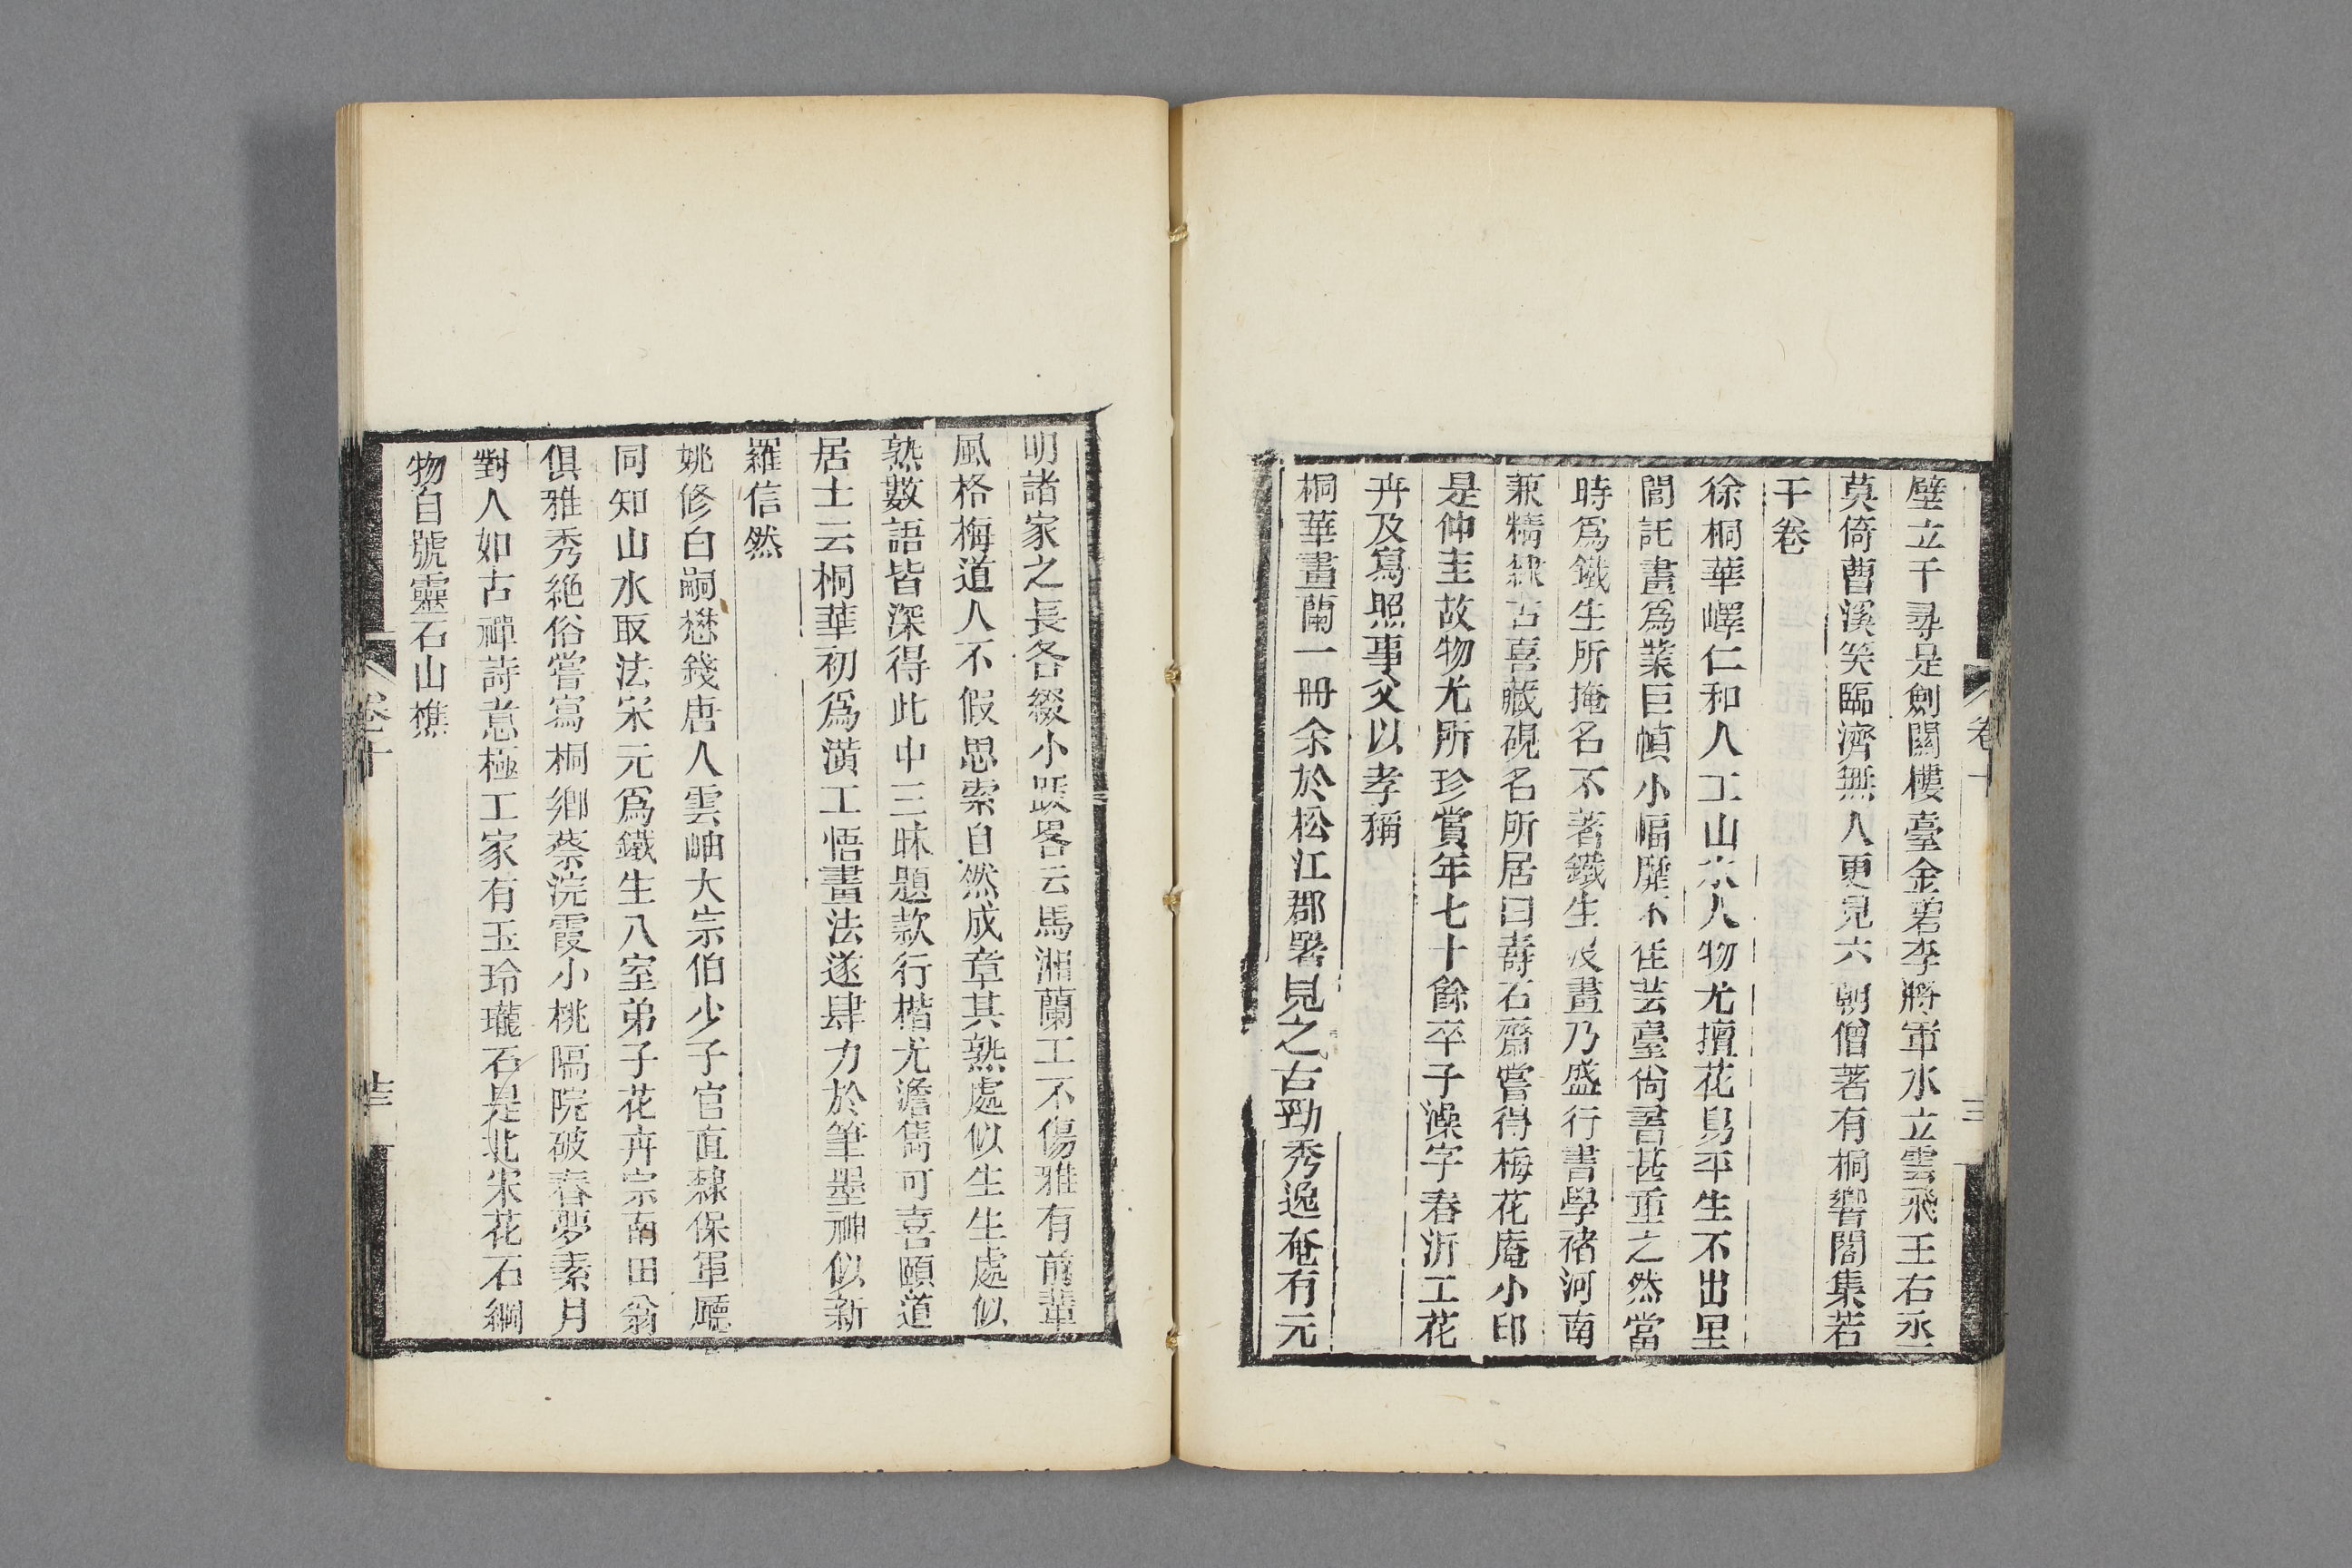 壁立千尋是劍關樓臺金碧李將軍水立雲飛王右丞
莫倚曹溪笑臨濟無人更見六朝僧著有桐響閣集若
干卷
徐桐華嶧仁和人工山水人物尤擅花鳥平生不出里
閭託畫爲業巨幀小幅靡不佳芸臺尙書甚重之然當
時爲鐵生所掩名不著鐵生歿畫乃盛行書學褚河南
兼精隸古喜藏硯名所居曰壽石齋嘗得梅花庵小印
是仲圭故物尤所珍賞年七十餘卒子澡字春沂工花
卉及寫照事父以孝稱
桐華畫蘭一冊余於松江郡署見之古勁秀逸奄有元
卷十
明諸家之長各綴小跋畧云馬湘蘭工不傷雅有前輩
風格梅道人不假思索自然成章其熟處似生生處似
熟數語皆深得此中三昧題款行楷尤澹雋可喜頤道
居士云桐華初爲潢工悟畫法遂肆力於筆墨神似新
羅信然
姚修白嗣懋錢唐人雲岫大宗伯少子官直隸保軍廳
同知山水取法宋元爲鐵生入室弟子花卉宗南田翁
俱雅秀絶俗嘗寫桐鄉蔡浣霞小桃隔院破春夢素月
對人如古禪詩意極工家有玉玲瓏石是北宋花石綱
物自號靈石山樵
卷十